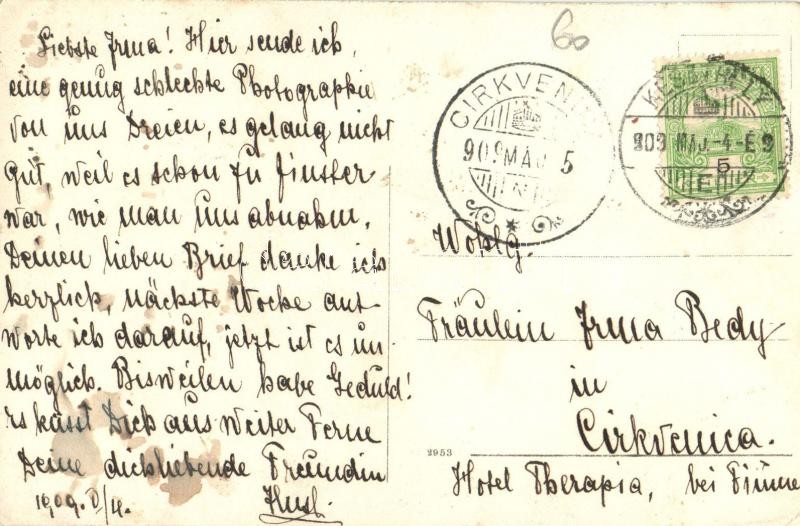 Liebste Irma! Hier sende ich,
eine genug schlechte Photographie
von uns Dreien, es gelang nicht
gut, weil es schon zu finster
war, wie man uns abnahm.
Deinen lieben Brief danke ich
herzlich, nächste Woche ant-
worte ich darauf, jetzt ist es un-
möglich. Bisweilen habe Geduld!
Es küsst Dich aus weiter Ferne
Deine dichliebende Freundin
1909. V/4.
60
CIRKVENI
909 MAJ. 5
KESZTHELY
909 MAJ. -4.-E 9
5
E
Wohlg.
Fräulein Irma Bedy
in
Cirkvenica.
Hotel Therapia, bei Fiume
2953